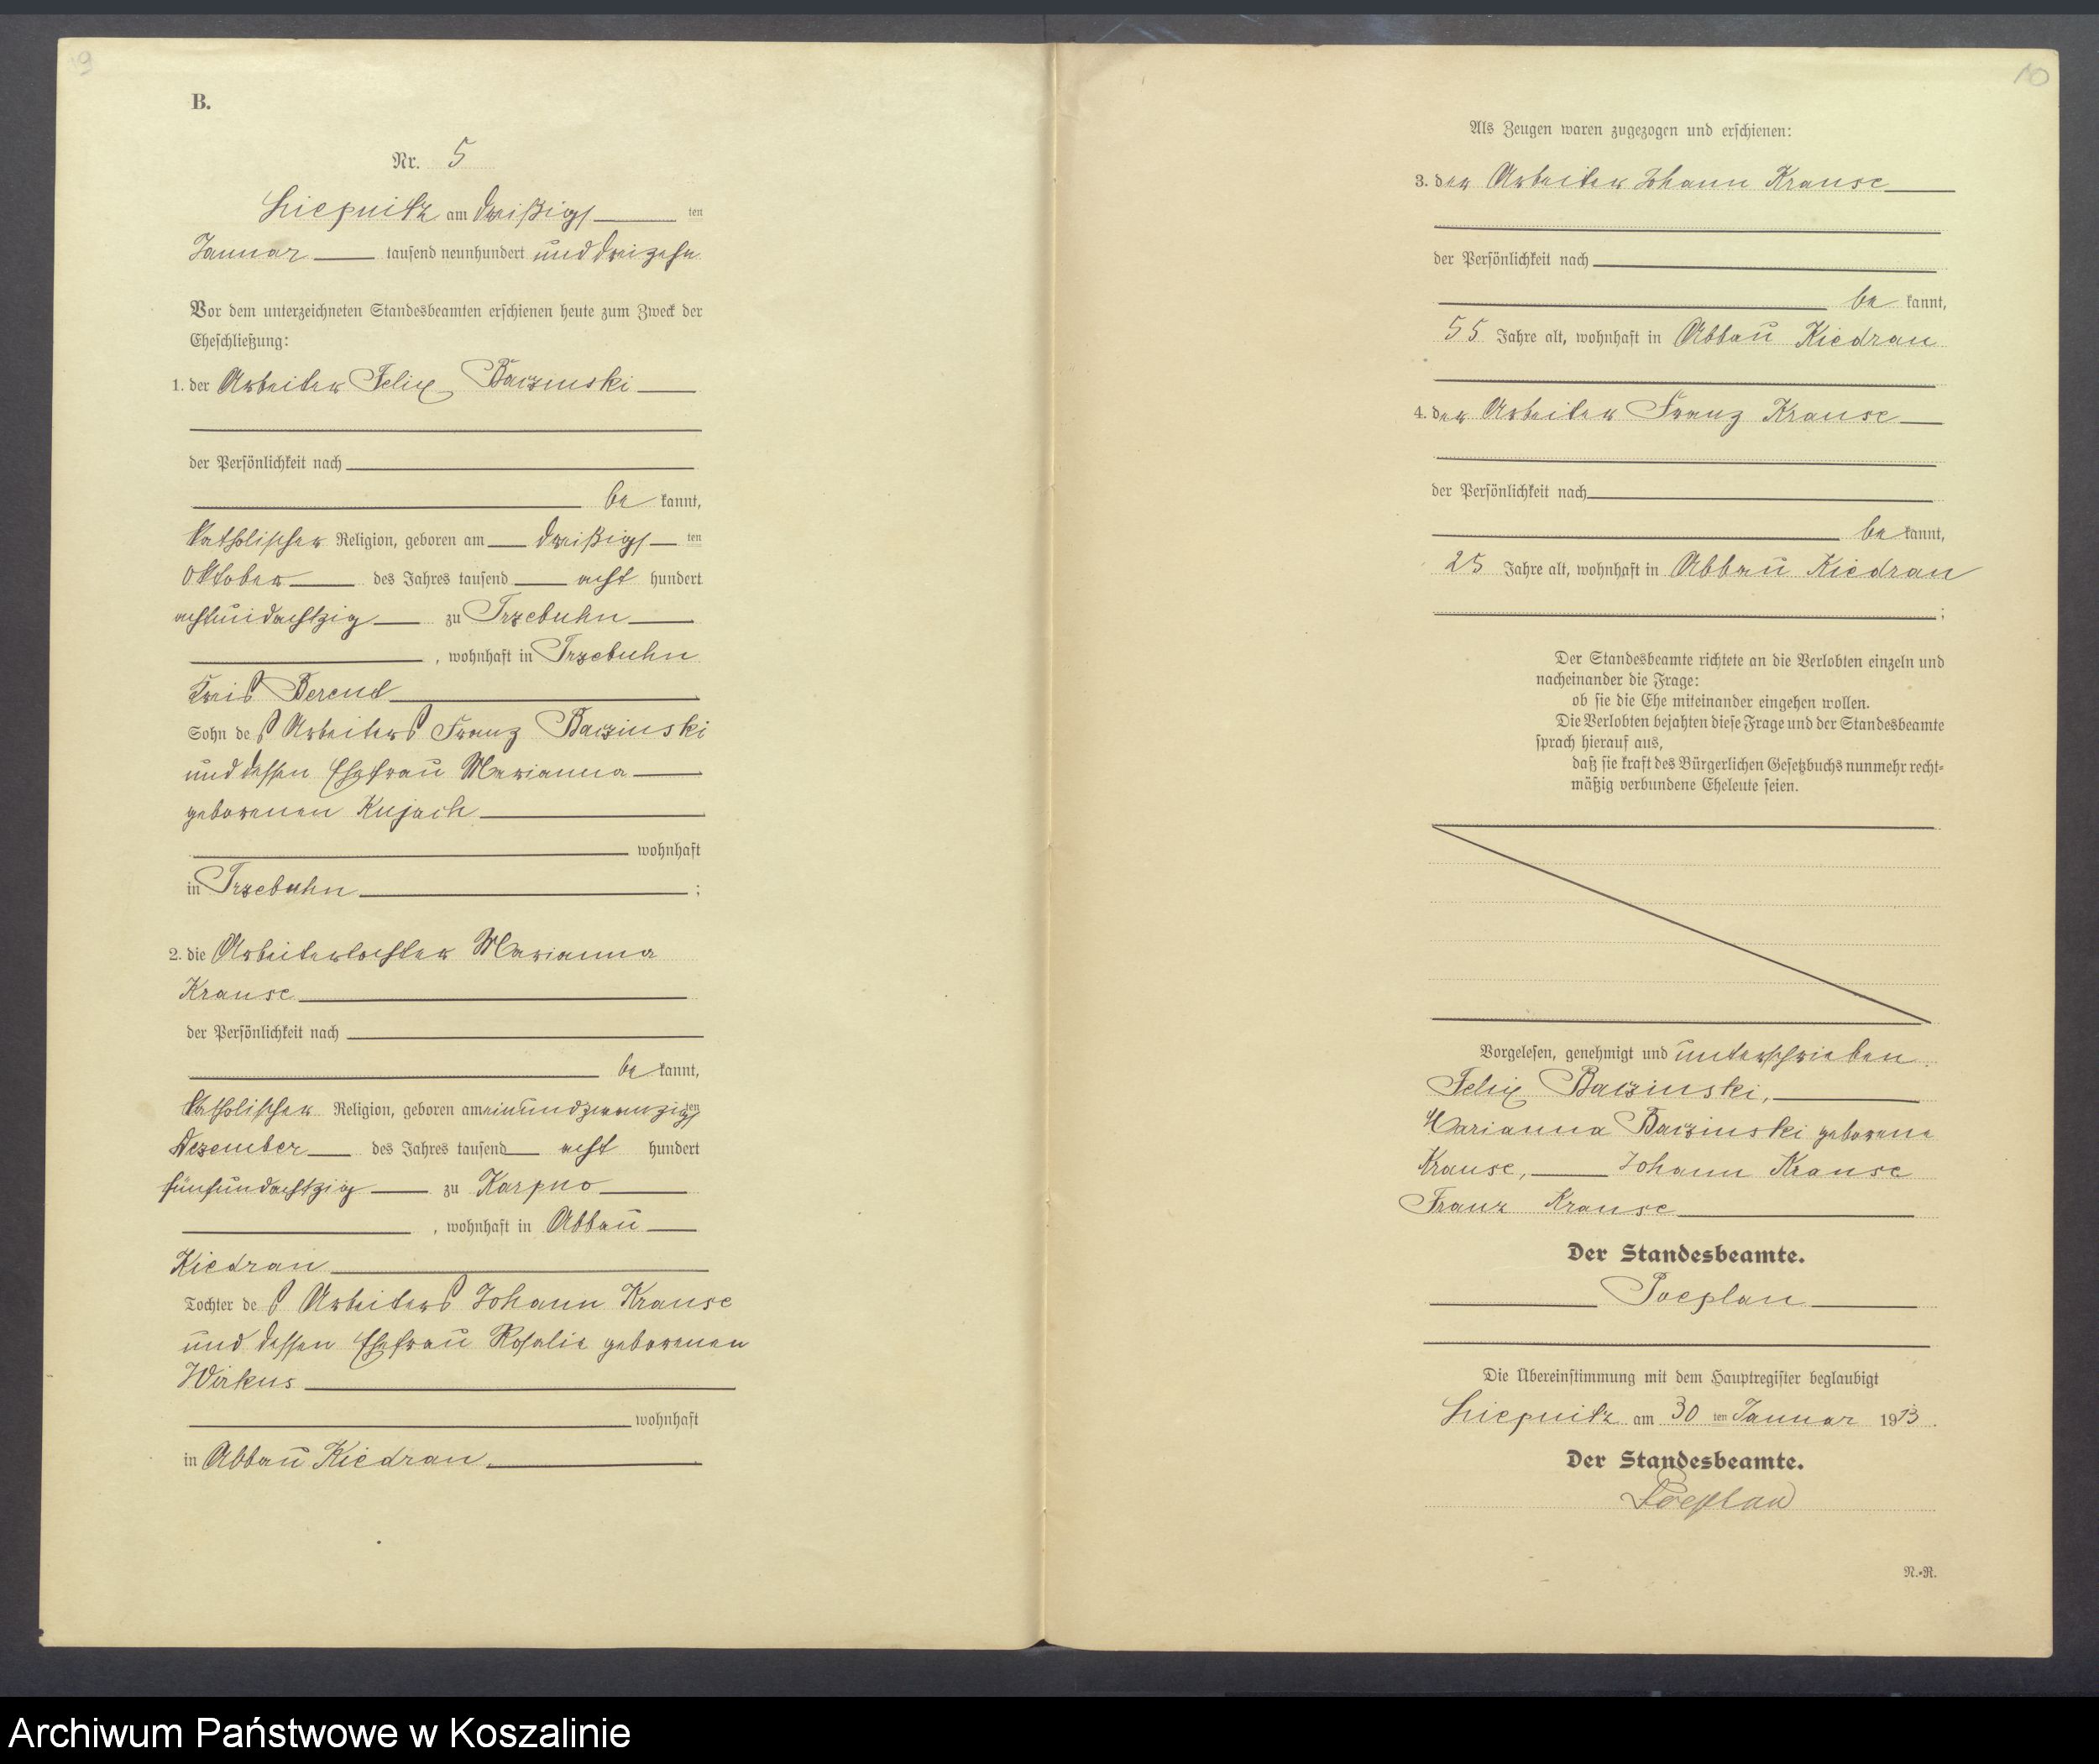 9
B.
Nr. 5
Liepnitz am dreißigs ten
Januar tausend neunhundert und dreizehn
Vor dem unterzeichneten Standesbeamten erschienen heute zum Zweck der
Eheschließung:
1. der Arbeiter Felix
der Persönlichkeit nach
be kannt,
katholischer Religion, geboren am dreißigs ten
Oktober des Jahres tausend acht hundert
achtundachtzig zu Trzebuhn
, wohnhaft in Trzebuhn
Kreis Berent
Sohn des Arbeiters Franz
und dessen Ehefrau Marianna
geborenen Kujach
wohnhaft
in Trzebuhn ;
2. die Arbeitertochter Marianna
Krause
der Persönlichkeit nach
be kannt,
katholischer Religion, geboren am einundzwanzigs ten
Dezember des Jahres tausend acht hundert
fünfundachtzig zu Karpno
, wohnhaft in Abbau
Kiedran
Tochter des Arbeiters Johann Krause
und dessen Ehefrau Rosalie geborenen
Wirkus
wohnhaft
in Abbau Kiedran.
10
Als Zeugen waren zugezogen und erschienen:
3. der Arbeiter Johann Krause
der Persönlichkeit nach
be kannt,
55 Jahre alt, wohnhaft in Abbau Kiedran
4. der Arbeiter Franz Krause
der Persönlichkeit nach
be kannt,
25 Jahre alt, wohnhaft in Abbau Kiedran
;
Der Standesbeamte richtete an die Verlobten einzeln und
nacheinander die Frage:
ob sie die Ehe miteinander eingehen wollen.
Die Verlobten bejahten diese Frage und der Standesbeamte
sprach hierauf aus,
daß sie kraft des Bürgerlichen Gesetzbuchs nunmehr recht-
mäßig verbundene Eheleute seien.
Vorgelesen, genehmigt und unterschrieben.
Felix
Marianna geborene
Krause, Johann Krause
Franz Krause
Der Standesbeamte.
Poeplau
Die Übereinstimmung mit dem Hauptregister beglaubigt
Liepnitz am 30 ten Januar 1913.
Der Standesbeamte.
Poeplau
N.-R.
Archiwum Państwowe w Koszalinie